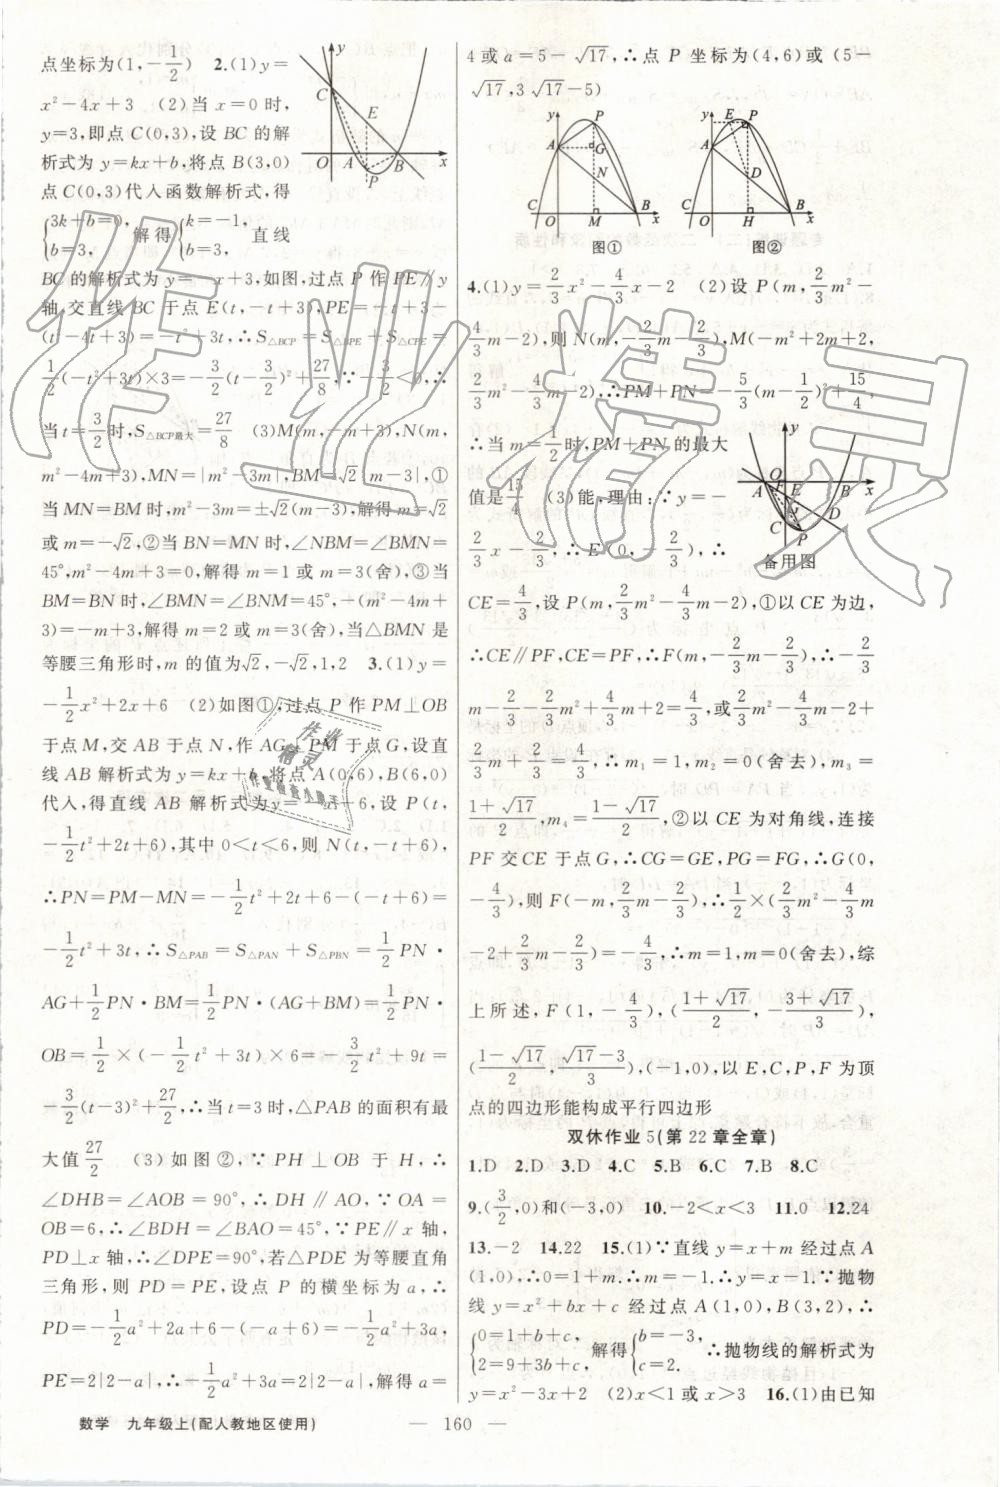 点坐标为(1,-1/2)　2.(1)y=
x²-4x+3　(2)当 x=0 时,
y=3,即点 C(0,3),设 BC 的解
析式为 y=kx+b,将点 B(3,0)
点 C(0,3)代入函数解析式,得
{3k+b=0, b=3, 解得{k=-1, b=3, 直线
BC 的解析式为 y=-x+3,如图,过点 P 作 PE∥y
轴,交直线 BC 于点 E(t,-t+3),PE=-t+3-
(t²-4t+3)=-t²+3t,∴S△BCP=S△BPE+S△CPE=
1/2(-t²+3t)×3=-3/2(t-3/2)²+27/8,∵-3/2<0,∴
当 t=3/2时,S△BCP最大=27/8　(3)M(m,-m+3),N(m,
m²-4m+3),MN=|m²-3m|,BM=√2|m-3|,①
当 MN=BM 时,m²-3m=±√2(m-3),解得 m=√2
或 m=-√2,②当 BN=MN 时,∠NBM=∠BMN=
45°,m²-4m+3=0,解得 m=1 或 m=3(舍),③当
BM=BN 时,∠BMN=∠BNM=45°,-(m²-4m+
3)=-m+3,解得 m=2 或 m=3(舍),当△BMN 是
等腰三角形时,m 的值为√2,-√2,1,2　3.(1)y=
-1/2x²+2x+6　(2)如图①,过点 P 作 PM⊥OB
于点 M,交 AB 于点 N,作 AG⊥PM 于点 G,设直
线 AB 解析式为 y=kx+b,将点 A(0,6),B(6,0)
代入,得直线 AB 解析式为 y=-x+6,设 P(t,
-1/2t²+2t+6),其中 0<t<6,则 N(t,-t+6),
∴PN=PM-MN=-1/2t²+2t+6-(-t+6)=
-1/2t²+3t,∴S△PAB=S△PAN+S△PBN=1/2PN·
AG+1/2PN·BM=1/2PN·(AG+BM)=1/2PN·
OB=1/2×(-1/2t²+3t)×6=-3/2t²+9t=
-3/2(t-3)²+27/2,∴当 t=3 时,△PAB 的面积有最
大值27/2　(3)如图②,∵PH⊥OB 于 H,∴
∠DHB=∠AOB=90°,∴DH∥AO,∵OA=
OB=6,∴∠BDH=∠BAO=45°,∵PE∥x 轴,
PD⊥x 轴,∴∠DPE=90°,若△PDE 为等腰直角
三角形,则 PD=PE,设点 P 的横坐标为 a,∴
PD=-1/2a²+2a+6-(-a+6)=-1/2a²+3a,
PE=2|2-a|,∴-1/2a²+3a=2|2-a|,解得 a=
y
C
E
O
A
B
x
P
4 或 a=5-√17,∴点 P 坐标为(4,6)或(5-
√17,3√17-5)
y P A G N C O M B x
图①
y E P A D C O H B x
图②
4.(1)y=2/3x²-4/3x-2　(2)设 P(m,2/3m²-
4/3m-2),则 N(m,-2/3m-2/3),M(-m²+2m+2,
2/3m²-4/3m-2),∴PM+PN=-5/3(m-1/2)²+15/4,
∴当 m=1/2时,PM+PN 的最大
值是15/4　(3)能,理由:∵y=-
2/3x-2/3,∴E(0,-2/3),∴
y O A F E B x C D P
备用图
CE=4/3,设 P(m,2/3m²-4/3m-2),①以 CE 为边,
∴CE∥PF,CE=PF,∴F(m,-2/3m-2/3),∴-2/3
m-2/3-2/3m²+4/3m+2=4/3,或2/3m²-4/3m-2+
2/3m+2/3=4/3,∴m₁=1,m₂=0(舍去),m₃=
(1+√17)/2,m₄=(1-√17)/2,②以 CE 为对角线,连接
PF 交 CE 于点 G,∴CG=GE,PG=FG,∴G(0,
-4/3),则 F(-m,2/3m-2/3),∴1/2×(2/3m²-4/3m
-2+2/3m-2/3)=-4/3,∴m=1,m=0(舍去),综
上所述,F(1,-4/3),((1+√17)/2,-(3+√17)/3),
((1-√17)/2,(√17-3)/3),(-1,0),以 E,C,P,F 为顶
点的四边形能构成平行四边形
双休作业 5(第 22 章全章)
1.D　2.D　3.D　4.C　5.B　6.C　7.B　8.C
9.(3/2,0)和(-3,0)　10.-2<x<3　11.0　12.24
13.-2　14.22　15.(1)∵直线 y=x+m 经过点 A
(1,0),∴0=1+m.∴m=-1.∴y=x-1.∵抛物
线 y=x²+bx+c 经过点 A(1,0),B(3,2),∴
{0=1+b+c, 2=9+3b+c, 解得{b=-3, c=2. ∴抛物线的解析式为
y=x²-3x+2　(2)x<1 或 x>3　16.(1)由已知
数学　九年级上(配人教地区使用)
— 160 —
作业精灵
作业精灵